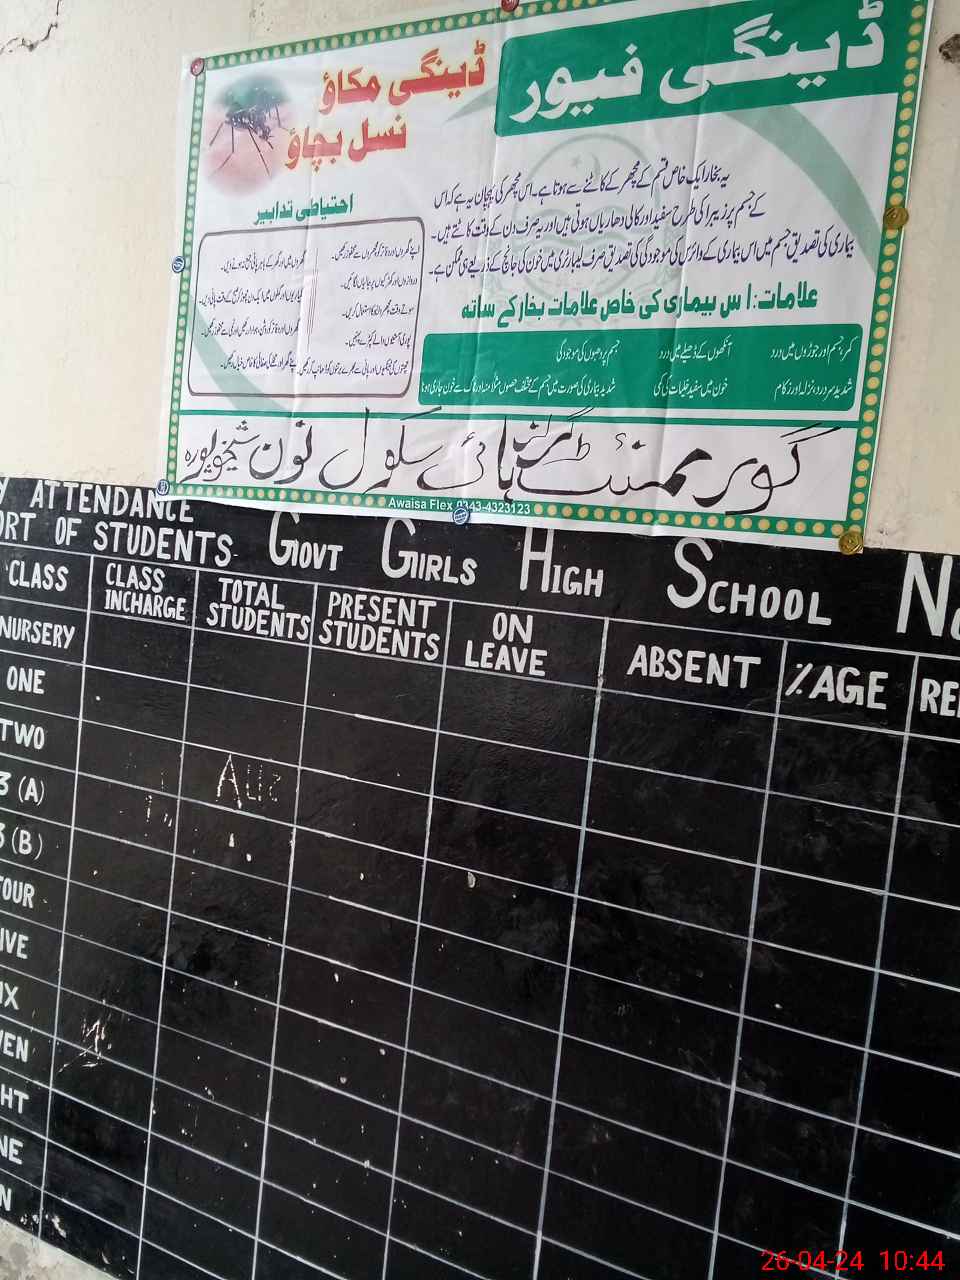 ڈینگی فیور
ڈینگی مکاؤ
نسل بچاؤ
یہ بخار ایک خاص قسم کے مچھر کے کاٹنے سے ہوتا ہے۔ اس مچھر کی پہچان یہ ہے کہ اس
کے جسم پر زیبرا کی طرح سفید اور کالی دھاریاں ہوتی ہیں اور یہ صرف دن کے وقت کاٹتے ہیں۔
بیماری کی تصدیق جسم میں اس بیماری کے وائرس کی موجودگی کی تصدیق صرف لیبارٹری میں خون کی جانچ کے ذریعے ہی ممکن ہے۔
علامات: اس بیماری کی خاص علامات بخار کے ساتھ
کمر، جسم اور جوڑوں میں درد
آنکھوں کے ڈھیلے میں درد
جسم پر دھبوں کی موجودگی
شدید سر درد، نزلہ اور زکام
خون میں سفید خلیات کی کمی
شدید بیماری کی صورت میں جسم کے مختلف حصوں مثلاً منہ اور ناک سے خون جاری ہونا
احتیاطی تدابیر
اپنے گھروں اور دفاتر کو مچھروں سے محفوظ رکھیں۔
دروازوں اور کھڑکیوں پر جالیاں لگائیں۔
سوتے وقت مچھر دانی کا استعمال کریں۔
پوری آستینوں والے کپڑے پہنیں۔
گورنمنٹ گرلز ہائی سکول نون شیخوپورہ
Awaisa Flex 0343-4323123
Y ATTENDANCE
ORT OF STUDENTS GOVT GIRLS HIGH SCHOOL
CLASS CLASS INCHARGE TOTAL STUDENTS PRESENT STUDENTS ON LEAVE ABSENT %AGE RE
NURSERY
ONE
TWO
3 (A)
3 (B)
FOUR
IVE
IX
VEN
HT
NE
N
26-04-24 10:44